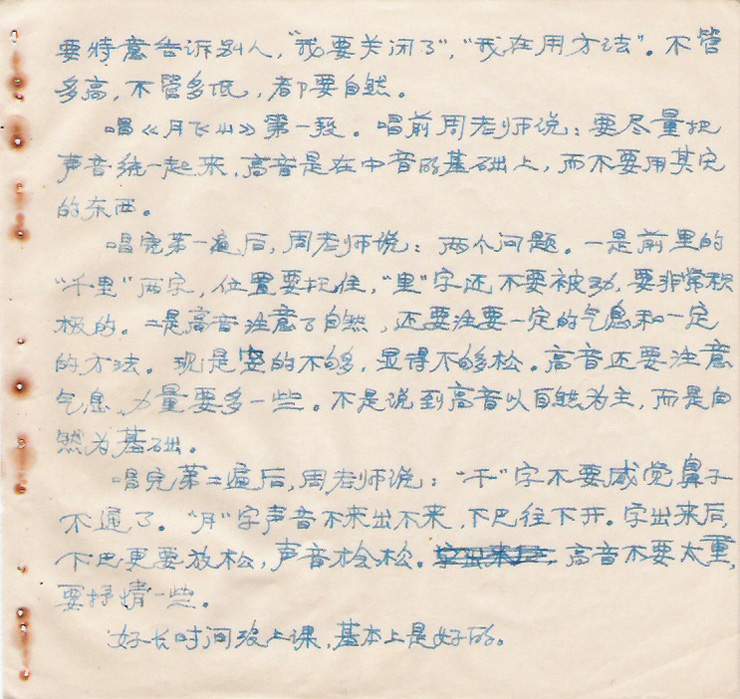 要特意告诉别人,“我要关闭了”,“我在用方法”。不管
多高,不管多低,都要自然。
唱《月飞山》第一段。唱前周老师说:要尽量把
声音统一起来,高音是在中音的基础上,而不要用其它
的东西。
唱完第一遍后,周老师说:两个问题。一是前里的
“千里”两字,位置要把住,“里”字还不要被动,要非常积
极的。二是高音注意了自然,还要注要一定的气息和一定
的方法。现是的不够,显得不够松。高音还要注意
气息,力量要多一些。不是说到高音以自然为主,而是自
然为基础。
唱完第二遍后,周老师说:“千”字不要感觉鼻子
不通了。“月”字声音不来出不来,下巴往下开。字出来后,
下巴更要放松,声音松。高音不要太重,
要抒情一些。
好长时间没上课,基本上是好的。